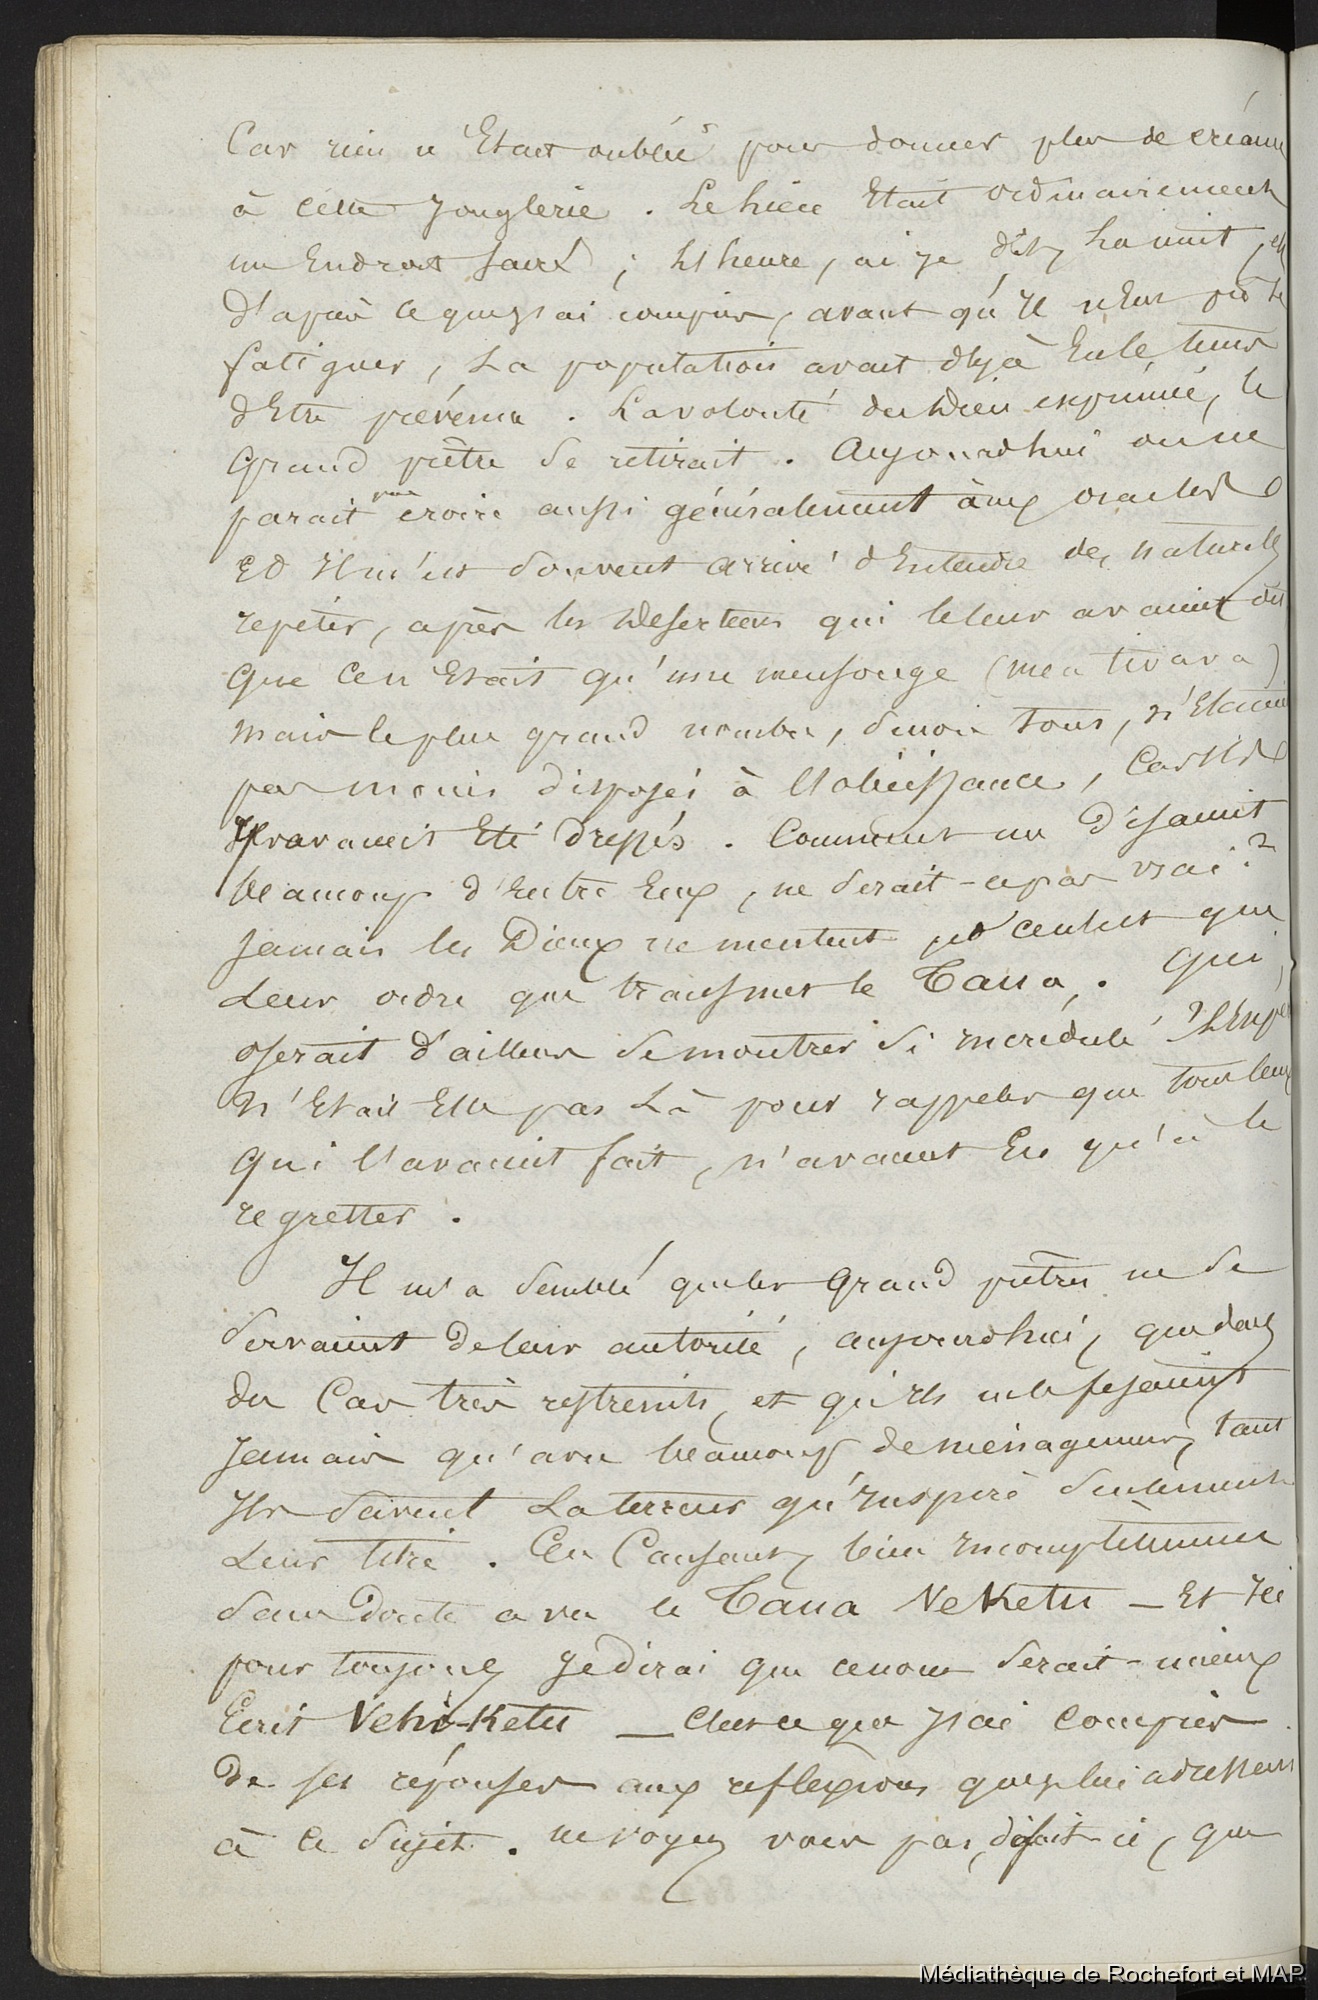 Car rien n'Etait oublié pour donner plus de créance
à cette Jonglerie. Le lieu Etait ordinairement
un Endroit sacré ; L'heure, ai je dit, La nuit, et
d'après ce que j'ai compris, avant qu'Il n'eut pu se
fatiguer, La population avait déjà Eu le tems
d'Etre prévenue. La volonté du Dieu exprimée, le
Grand prêtre se retirait. Aujourdhui on ne
parait pas croire aussi généralement aux oracles
Et Il m'est souvent arrivé d'Entendre des naturels
repéter, après les Deserteurs qui le leur avaient dit
que Cen'Etait qu'un mensonge (mea tivava)
mais le plus grand nombre, sinon tous, n'Etaient
pas moins disposés à l'obéissance, Car Ils
Y avaient Eté dressés. Comment me disaient
beaucoup d'Entre Eux, ne serait-ce pas vrai ?
Jamais les Dieux ne mentent et ce n'est que
Leur ordre que transmet le Taua. Qui
oserait d'ailleurs se montrer si incrédule ?
N'Etait Elle pas Là pour rappeler que tous ceux
qui l'avaient fait, n'avaient Eu qu'à le
regretter.
Il m'a semblé que les Grand prêtres ne se
servaient de leur autorité, aujourdhui, que dans
des Cas très restreints, et qu'Ils ne le fesaient
Jamais qu'avec beaucoup de ménagemens, tant
Ils savent La terreur qu'Inspire seulement
Leur titre. En Causant, bien Incomplètement
sans Doute avec le Taua Veketu — Et Ici
pour toujours Je dirai que ce nom serait-mieux
Ecrit Vehi-Ketu — C'est ce que J'ai compris
De ses réponses aux reflexions que je lui adressais
à ce sujet. ne voyez vous pas, disait-il, que
Médiathèque de Rochefort et MAP